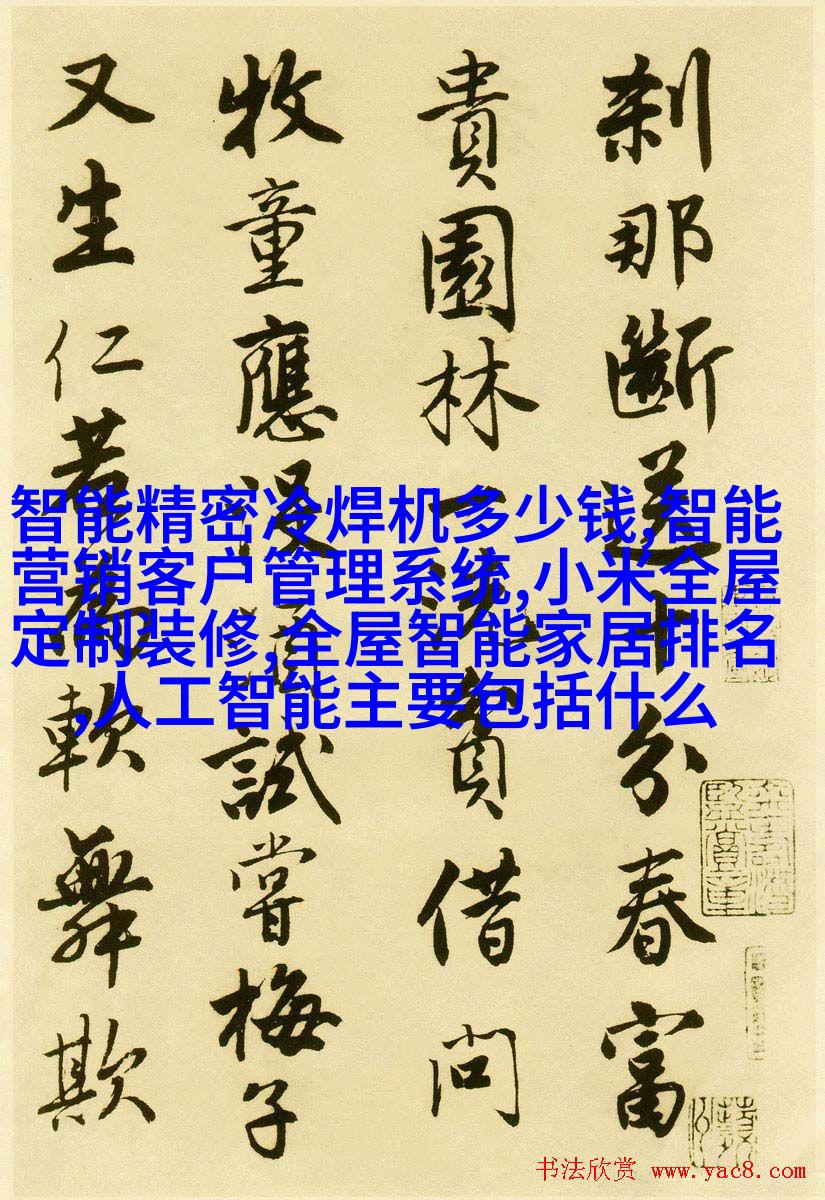 刹那斷送十分春富
貴園林一洗貧借問
牧童應沒酒試嘗梅子
又生仁若為軟舞欺
智能精密冷焊机多少钱,智能
营销客户管理系统,小米全屋
定制装修,全屋智能家居排名
,人工智能主要包括什么
书法欣赏 www.yac8.com